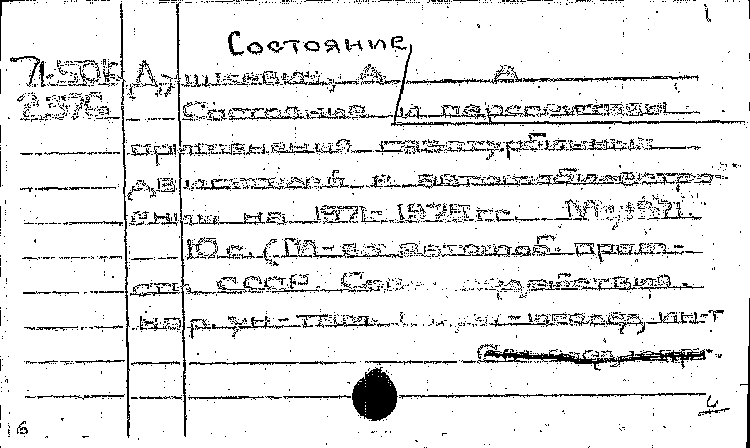 Состояние
71-50К Душкевич, А А
2376 Состояние и перспективы
применения газотурбинных
двигателей в автомобилестро-
ении на 1971-1975 гг. М., 1971.
10 с. (М-во автомоб. пром-
сти СССР. содействия.
нар. ун-т ин-т
6
4